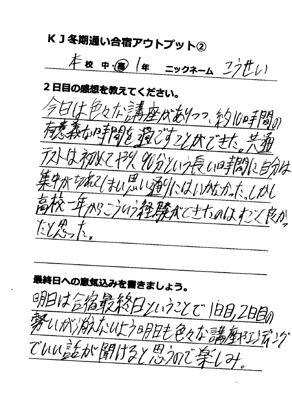 KJ冬期通い合宿アウトプット②
本校 中・高 1年 ニックネーム こうせい
2日目の感想を教えてください。
今日は色々な講座がありつつ、約10時間の
有意義な時間を過ごすことができた。共通
テストは初めてやり、90分という長い時間に自分は
集中がきれてしまい思い通りにはいかなかった。しかし
高校一年からこういう経験ができたのはすごく良かっ
たと思った。
最終日への意気込みを書きましょう。
明日は合宿最終日ということで1日目,2日目の
勢いが消えないよう明日も色々な講座やエンディング
でいい話が聞けると思うので楽しみ。